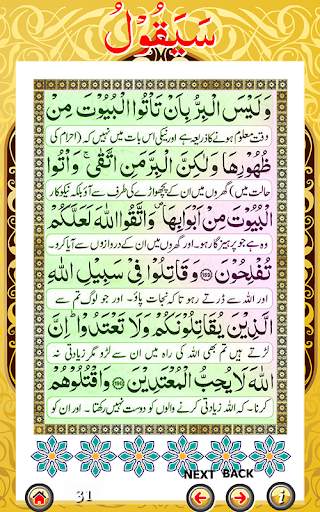 سَيَقُوْلُ
وَلَيْسَ الْبِرُّ بِاَنْ تَاْتُوا الْبُيُوْتَ مِنْ
وقت معلوم ہونے کا ذریعہ ہے اور نیکی اس بات میں نہیں کہ (احرام کی
ظُهُوْرِهَا وَلٰكِنَّ الْبِرَّ مَنِ اتَّقٰى ۚ وَاْتُوا
حالت میں) گھروں میں ان کے پچھواڑے کی طرف سے آؤ بلکہ نیکوکار
الْبُيُوْتَ مِنْ اَبْوَابِهَا ۪ وَاتَّقُوا اللّٰهَ لَعَلَّكُمْ
وہ ہے جو پرہیزگار ہو۔ اور گھروں میں ان کے دروازوں سے آیا کرو۔
تُفْلِحُوْنَ ﴿189﴾ وَقَاتِلُوْا فِيْ سَبِيْلِ اللّٰهِ
اور اللہ سے ڈرتے رہو تاکہ نجات پاؤ۔ اور جو لوگ تم سے
الَّذِيْنَ يُقَاتِلُوْنَكُمْ وَلَا تَعْتَدُوْا ؕ اِنَّ
لڑتے ہیں تم بھی اللہ کی راہ میں ان سے لڑو مگر زیادتی نہ
اللّٰهَ لَا يُحِبُّ الْمُعْتَدِيْنَ ﴿190﴾ وَاقْتُلُوْهُمْ
کرنا۔ کہ اللہ زیادتی کرنے والوں کو دوست نہیں رکھتا۔ اور ان کو
NEXT BACK
31